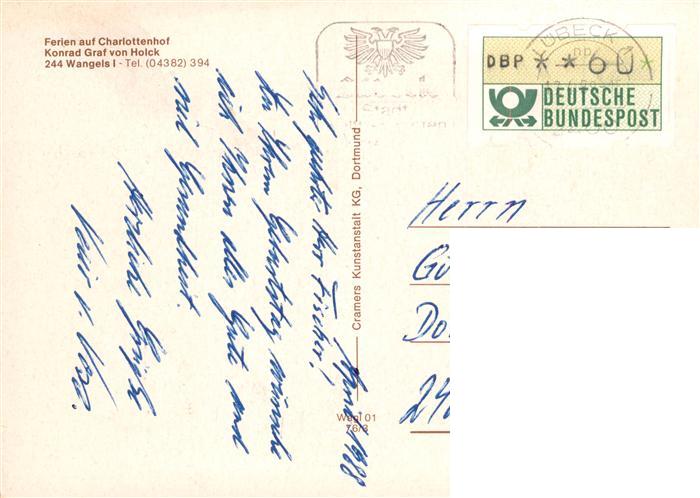 Ferien auf Charlottenhof
Konrad Graf von Holck
244 Wangels I - Tel. (04382) 394
LÜBECK
DBP **60*
DEUTSCHE
BUNDESPOST
Stadt
Cramers Kunstanstalt KG, Dortmund
Wagl 01
76/3
April 1988
Sehr geehrter Herr Fischer!
Zu Ihrem Geburtstag wünsche
ich Ihnen alles Gute und
viel Gesundheit.
Herzliche Grüße
v.
Herrn
Gü
Do
24